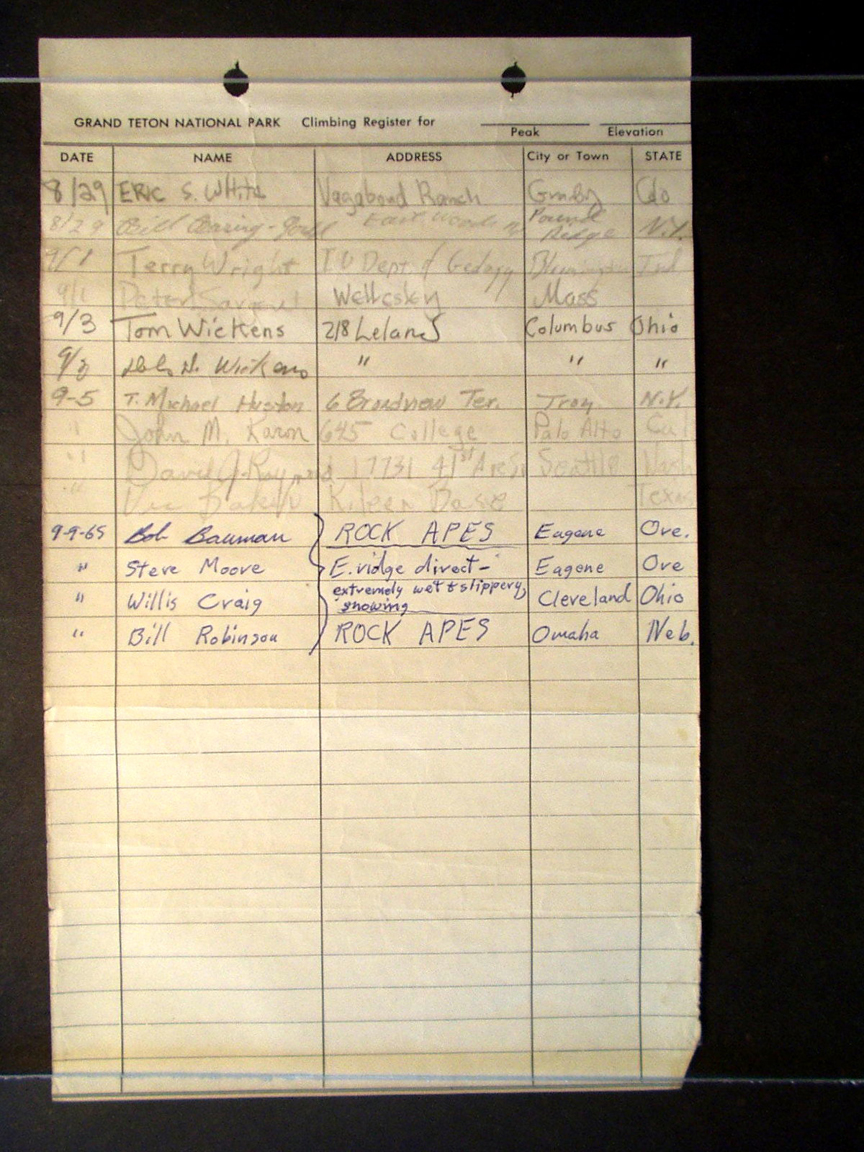 GRAND TETON NATIONAL PARK Climbing Register for
Peak Elevation
DATE NAME ADDRESS City or Town STATE
8/29 ERIC S. White Vagabond Ranch Granby Colo
8/29 Bill East Woods Pound Ridge N.Y.
9/1 Terry Wright I U Dept. of Geology Bloomington Ind
9/1 Peter Wellesley Mass
9/3 Tom Wickens 218 Leland Columbus Ohio
9/3 N. Wickens " " "
9-5 T. Michael Huston 6 Broadview Ter. Troy N.Y.
" John M. Karon 645 College Palo Alto Cal
" David J. Raymond 17731 41st Ave S. Seattle Wash
" Vic Kileen Base Texas
9-9-65 Bob Bauman ROCK APES Eugene Ore.
" Steve Moore E. ridge direct- Eagene Ore
" Willis Craig extremely wet & slippery, snowing Cleveland Ohio
" Bill Robinson ROCK APES Omaha Neb.